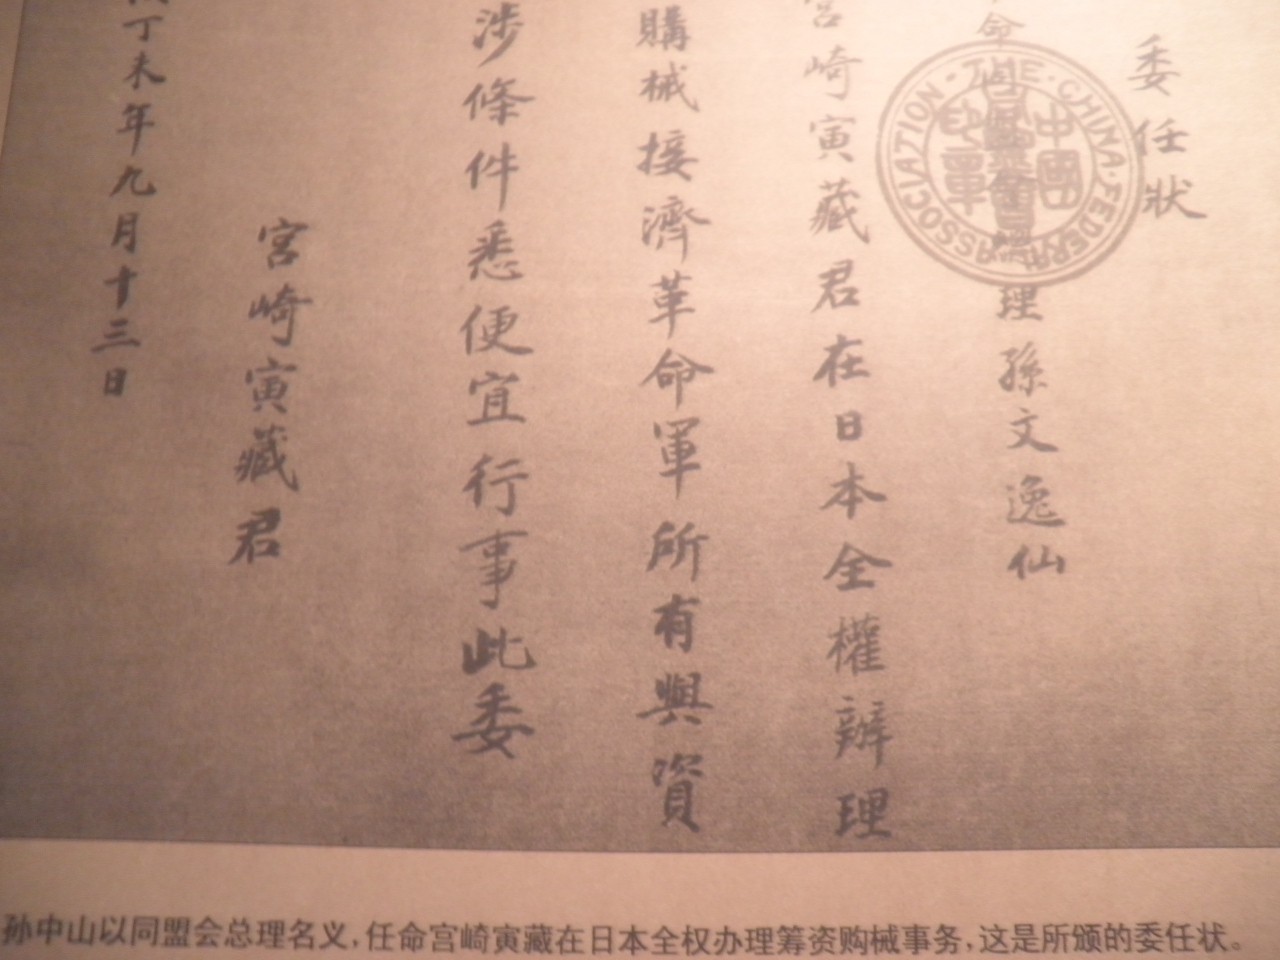 委任狀
命同盟會總理孫文逸仙
宮崎寅藏君在日本全權辦理
購械接濟革命軍所有與資
涉條件悉便宜行事此委
宮崎寅藏君
丁未年九月十三日
THE·CHINA·FEDERAL ASSOCIATION
中國
孙中山以同盟会总理名义,任命宫崎寅藏在日本全权办理筹资购械事务,这是所颁的委任状。